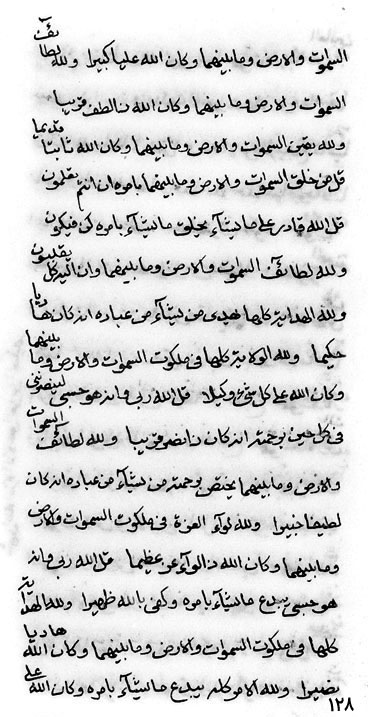 السموات والارض وما بينهما وكان الله عليا كبيرا ولله لطائف
السموات والارض وما بينهما وكان الله ذا لطف قريبا
ولله يقين السموات والارض وما بينهما وكان الله ثابتا قديما
قل من خلق السموات والارض وما بينهما بامره ان انتم يعلمون
قل الله قادر على ما يشآء يخلق ما يشآء بامره كن فيكون
ولله لطائف السموات والارض وما بينهما وان اليه كل يقلبون
ولله الهداية كلها يهدى من يشآء من عباده انه كان هاديا
حكيما ولله الولاية كلها فى ملكوت السموات والارض وما بينهما
وكان الله على كل شئ وكيلا قل الله ربى وانه هو حسبى لينصرنى
فى كل حين برحمته انه كان ذا نصر قريبا ولله لطائف السموات
والارض وما بينهما يختص برحمته من يشآء من عباده انه كان
لطيفا خبيرا ولله لوآء العزة فى ملكوت السموات والارض
وما بينهما وكان الله ذا لوآء عز عظيما قل الله ربى وانه
هو حسبى يبدع ما يشآء بامره وكفى بالله ظهيرا ولله الهداية
كلها فى ملكوت السموات والارض وما بينهما وكان الله هاديا
نصيرا ولله الامر كله يبدع ما يشآء بامره وكان الله على
١٢٨